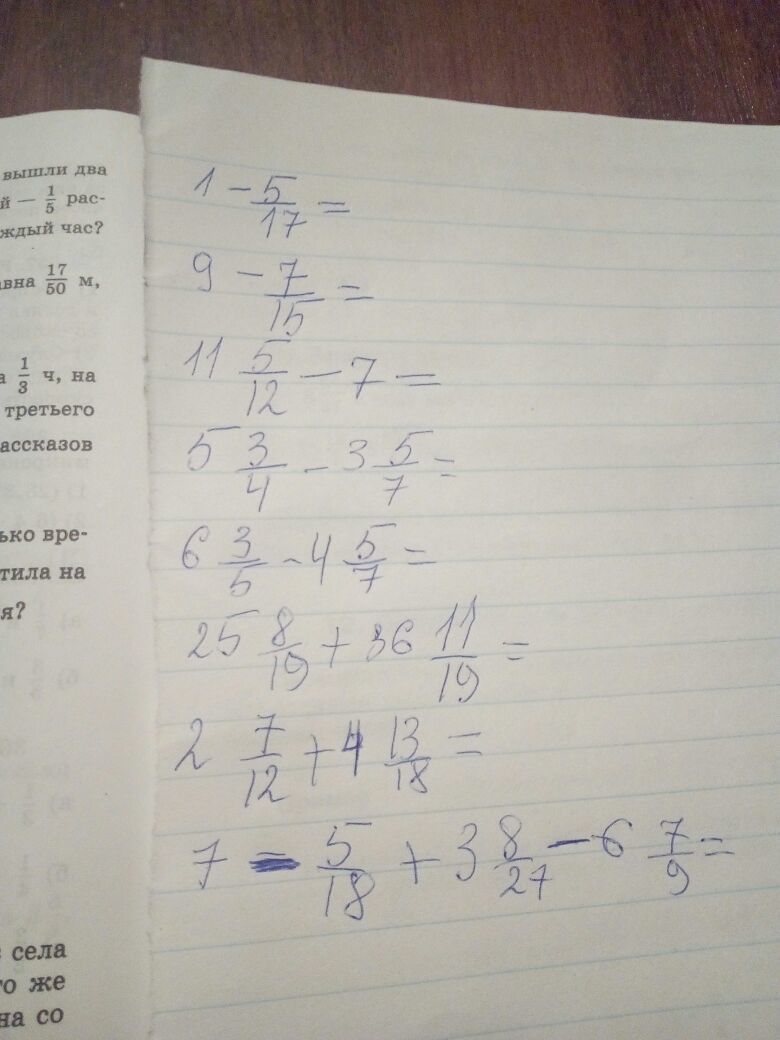 вышли два
й — 1/5 рас-
ждый час?
вна 17/50 м,
а 1/3 ч, на
третьего
ассказов
ько вре-
тила на
я?
села
го же
на со
1 - 5/17 =
9 - 7/15 =
11 5/12 - 7 =
5 3/4 - 3 5/7 =
6 3/5 - 4 5/7 =
25 8/19 + 36 11/19 =
2 7/12 + 4 13/18 =
7 - 5/18 + 3 8/27 - 6 7/9 =